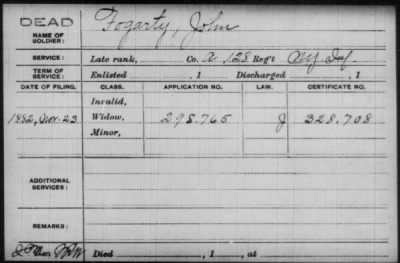 DEAD
NAME OF SOLDIER: Fogarty, John
SERVICE: Late rank, Co. A. 128 Reg't NY Inf
TERM OF SERVICE: Enlisted , 1 Discharged , 1
DATE OF FILING. CLASS. APPLICATION NO. LAW. CERTIFICATE NO.
Invalid,
1882, Nov. 23 Widow, 298.765 J 328.708
Minor,
ADDITIONAL SERVICES:
REMARKS:
Died , 1 , at